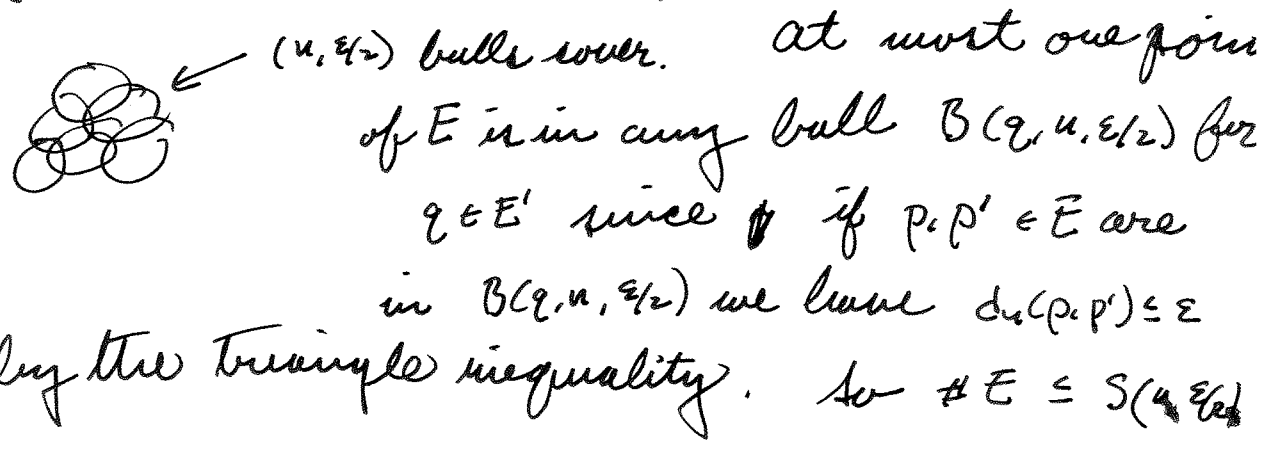 (n, ε/2) balls cover. at most one poin
of E is in any ball B(q, n, ε/2) for
q ∈ E' since if p, p' ∈ E are
in B(q, n, ε/2) we have dₙ(p, p') ≤ ε
by the triangle inequality. So # E ≤ S(n, ε/2)